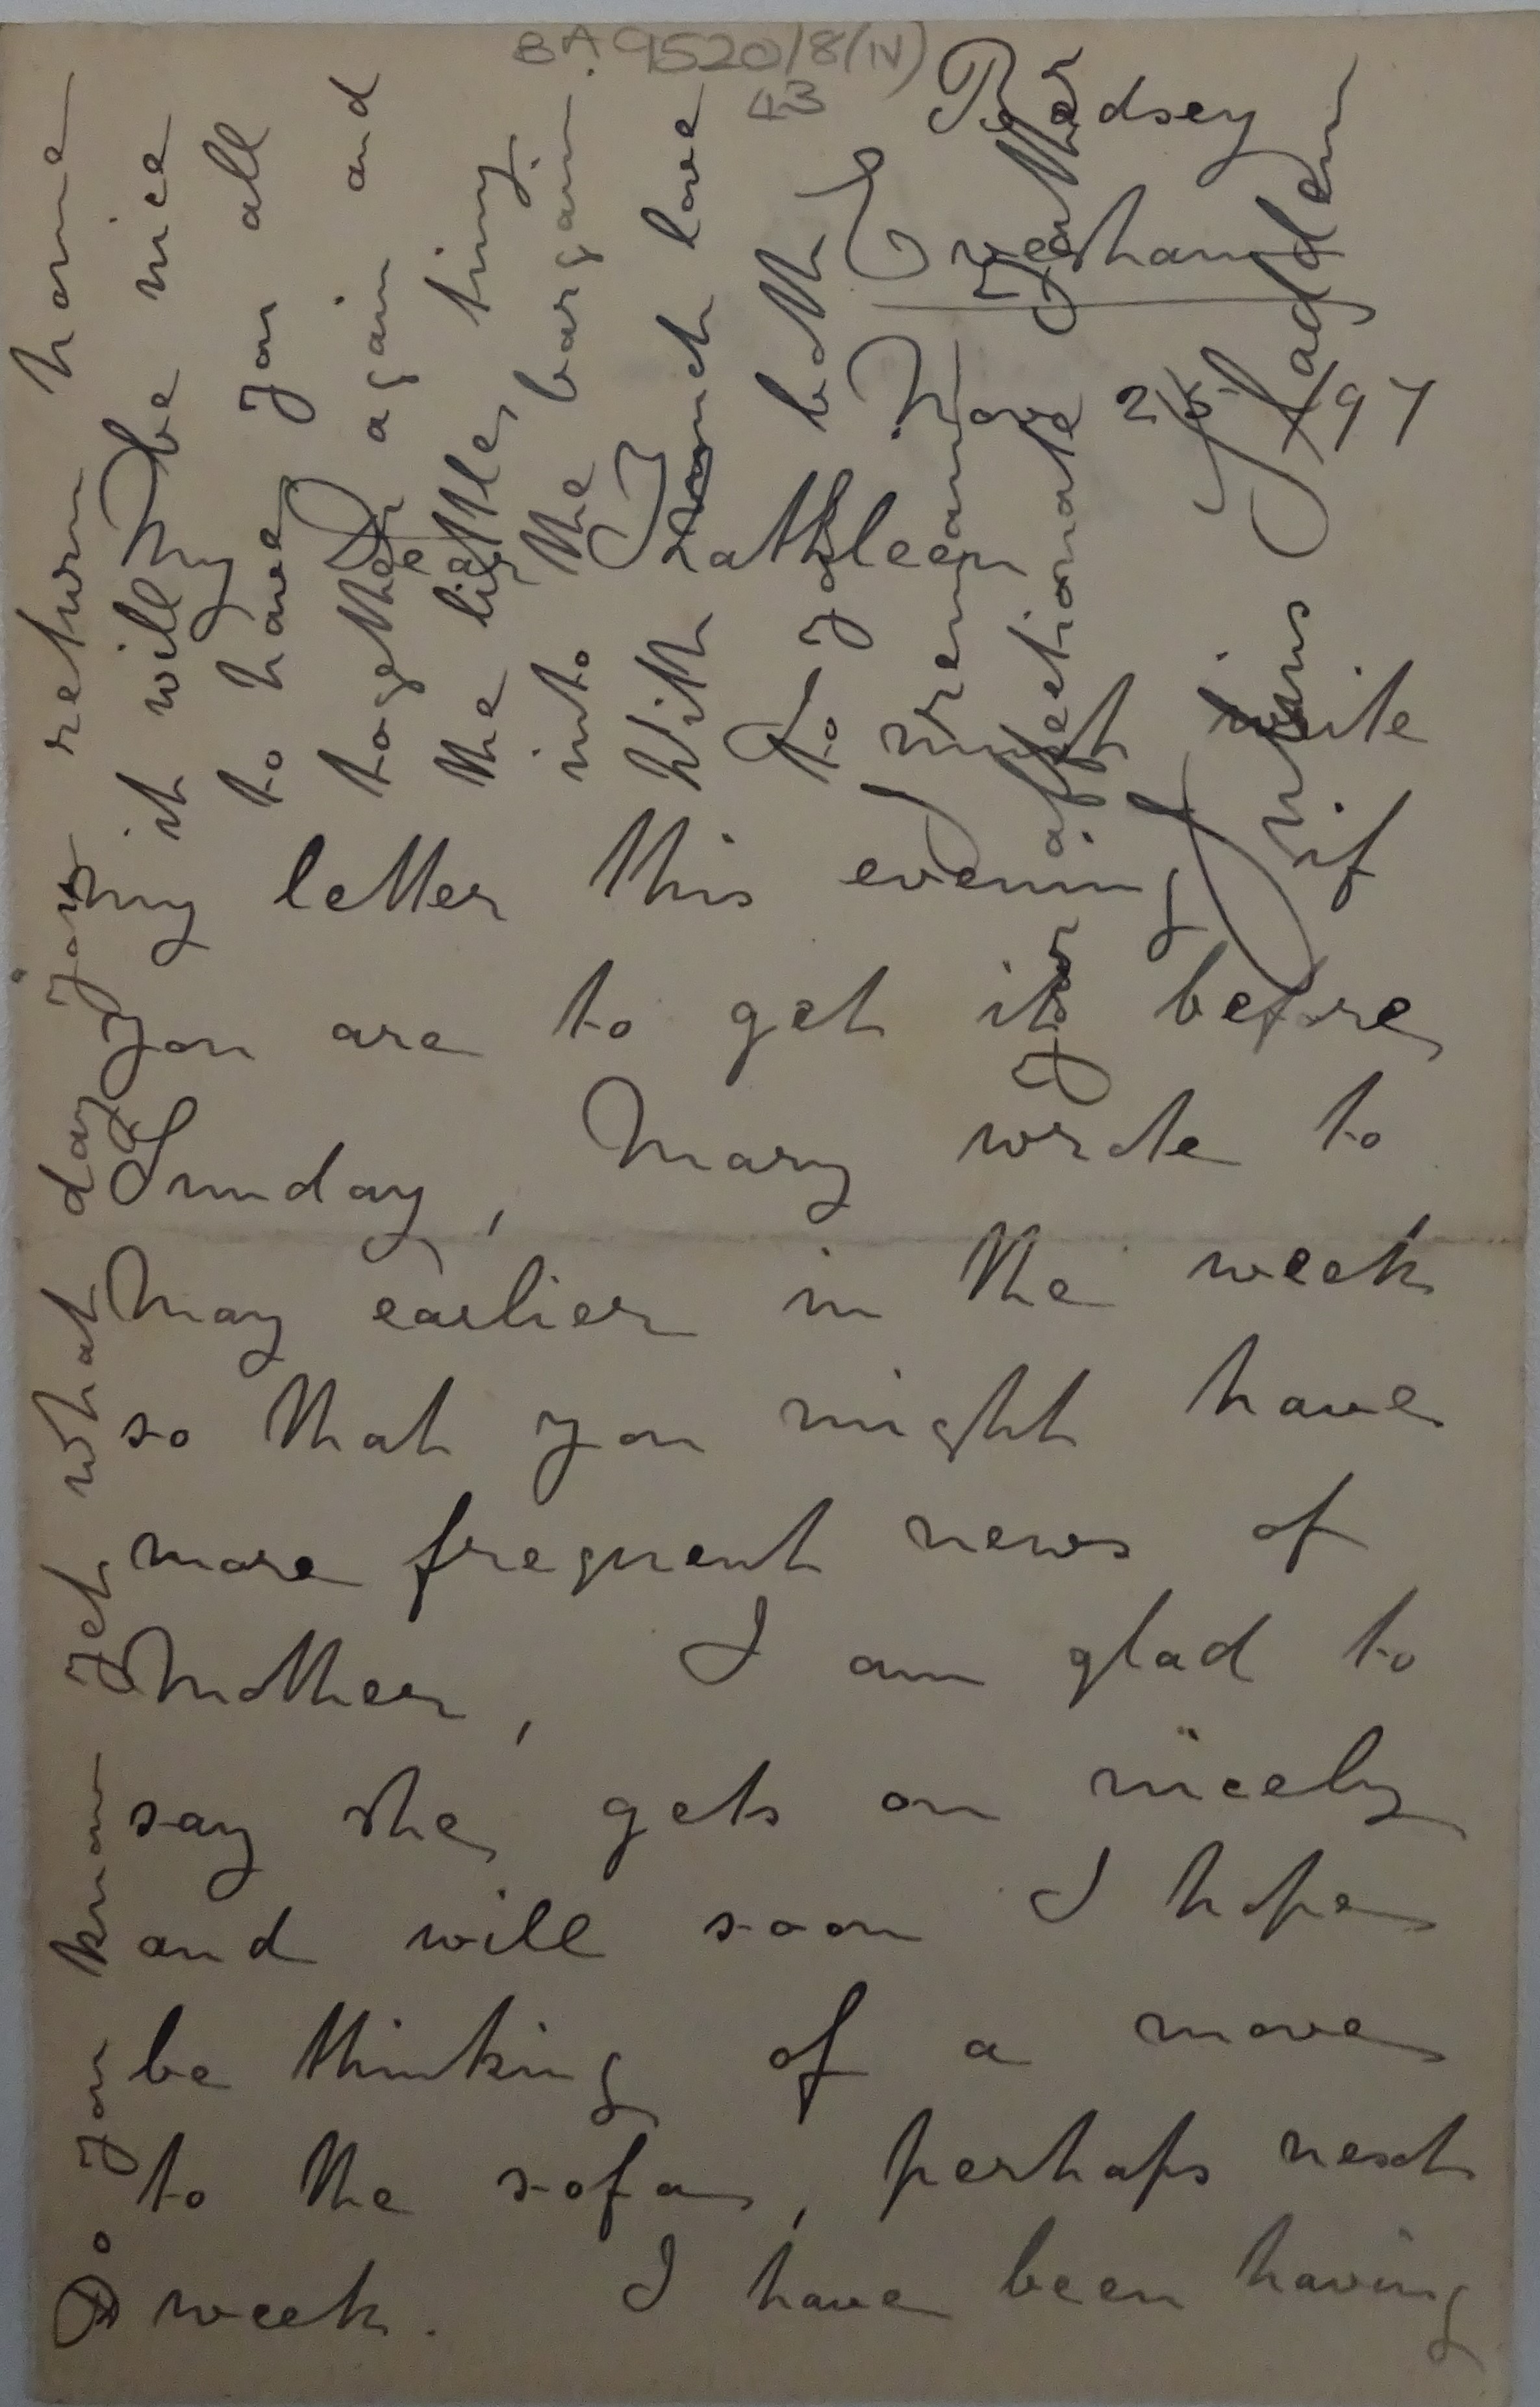 BA 9520/8(IV)
43
Badsey
Evesham
Nov 25/97
My Dear
Kathleen
I must write
my letter this evening if
you are to get it before
Sunday, Mary wrote to
May earlier in the week
so that you might have
more frequent news of
Mother, I am glad to
say she gets on nicely
and will soon I hope
be thinking of a move
to the sofa, perhaps next
week. I have been having
Do you know yet what day you return home
it will be nice
to have you all
together again and
the little, tiny
into the bargain.
With much love
to you both
I remain
your affectionate father
Julius Sladden